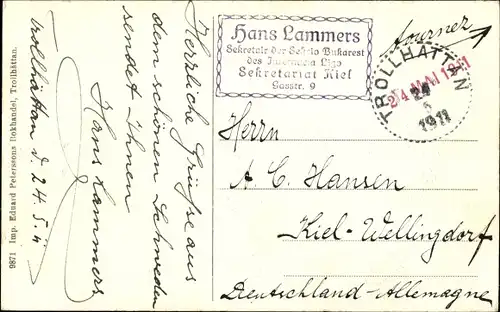 Herrliche Grüße aus
dem schönen Schweden
sendet Ihnen
Hans Lammers
Trollhättan d. 24.5.11
9871 Imp. Eduard Peterssons Bokhandel, Trollhättan.
Hans Lammers
Sekretair der Sektio Bukarest
des Liga
Sekretariat Kiel
Gasstr. 9
tourner
TROLLHÄTTAN
24 MAI 1911
24
5
1911
Herrn
A. C. Hansen
Kiel-Wellingdorf
Deutschland-Allemagne